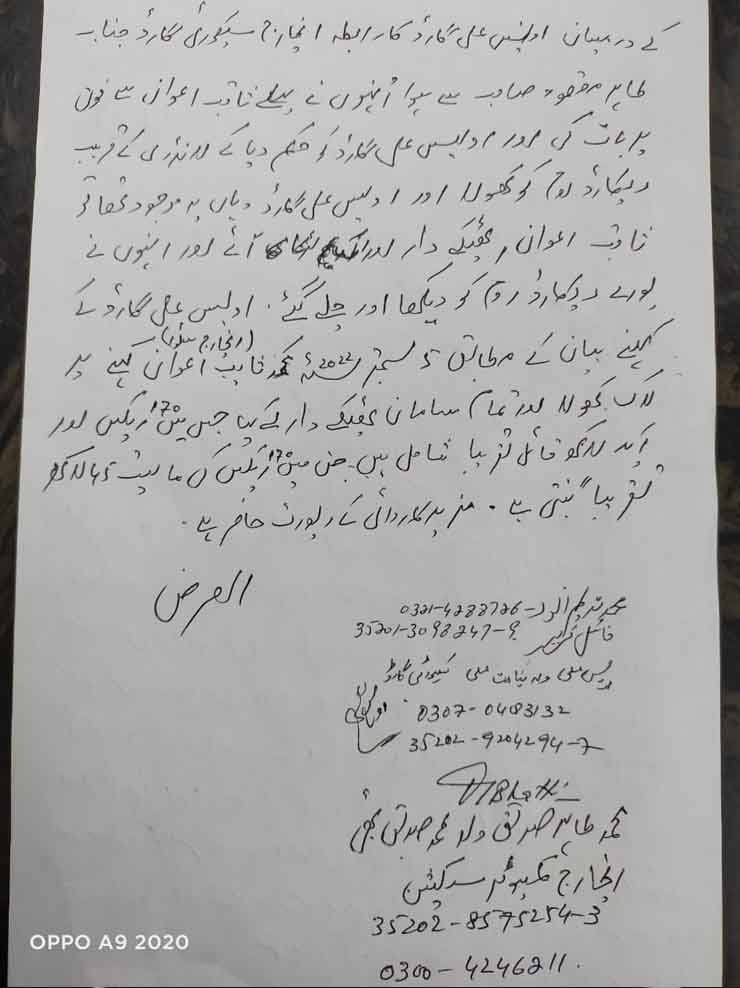 کے درمیان اویس علی گارڈ کا رابطہ انچارج سیکورٹی گارڈ جناب
طاہر مقصود صاحب سے ہوا اُنہوں نے پہلے ثاقب اعوان سے فون
پر بات کی اور اویس علی گارڈ کو حکم دیا کے لانڈری کے قریب
ریکارڈ روم کو کھولا اور اویس علی گارڈ وہاں پہ موجود تھا تو
ثاقب اعوان، ٹھیکے دار اور آئے اور انہوں نے
پورے ریکارڈ روم کو دیکھا اور چلے گئے۔ اویس علی گارڈ کے
کہنے بیان کے مطابق 5 ستمبر 2022ء ثاقب اعوان (انچارج سٹور) کہنے پر
لاک کھولا اور تمام سامان ٹھیکے دار لے گیا جس میں 170 ریکس اور
ایک لاکھ فائل تقریباً شامل ہیں۔ جن میں 170 ریکس کی مالیت 45 لاکھ
تقریباً بنتی ہے۔ مزید کاروائی کے رپورٹ حاضر ہے۔
العرض
محمد ندیم انور - 0321-4288726
فائل کیپر 35201-3098247-9
اویس علی ولد نیامت علی سکیورٹی گارڈ
اویس علی 0307-0483132
35202-9204294-7
TBhatti
محمد طاہر صدیق ولد محمد صدیق بھٹی
انچارج کمپیوٹر سیکشن
35202-8575254-3
0300-4246211.
OPPO A9 2020